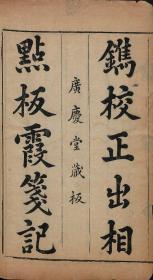 鐫校正出相
廣慶堂藏板
點板霞箋記